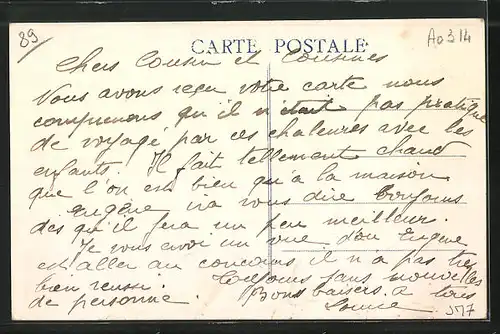 89
CARTE POSTALE
A0314
Chers Cousin et Cousines
Nous avons reçu votre carte nous
comprenons qu'il n'etait pas pratique
de voyagé par ces chaleures avec les
enfants. Il fait tellement chaud
que l'on est bien qu'à la maison
Eugène ira vous dire bonjours
des qu'il fera un peu meilleur.
Je vous envoi un vue d'ou Eugene
et aller au concours il n'a pas très
bien reussi. Toujours sans nouvelles
de personne. Bons baisers a tous
Louise
JM7